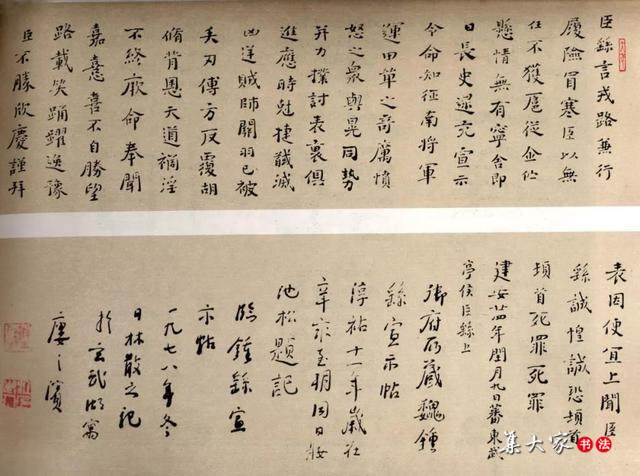 臣繇言戎路兼行
履險冒寒臣以無
任不獲扈從企佇
懸情無有寧舍即
日長史逯充宣示
令命知征南將軍
運田單之奇厲憤
怒之衆與晃同勢
并力撲討表裏俱
進應時剋捷馘滅
凶逆賊帥關羽已被
矢刃傅方反覆胡
脩背恩天道禍淫
不終厥命奉聞
嘉憙喜不自勝望
路載笑踊躍逸豫
臣不勝欣慶謹拜
表因便宜上聞臣
繇誠惶誠恐頓首
頓首死罪死罪
建安廿四年閏月九日蕃東武
亭侯臣繇上
御府所藏魏鍾
繇宣示帖
淳祐十一年歲在
辛亥至朔同日妝
池松題記
臨鍾繇宣
示帖
一九七八年冬
日林散之記
於玄武湖寓
廔之濱
集大家书法